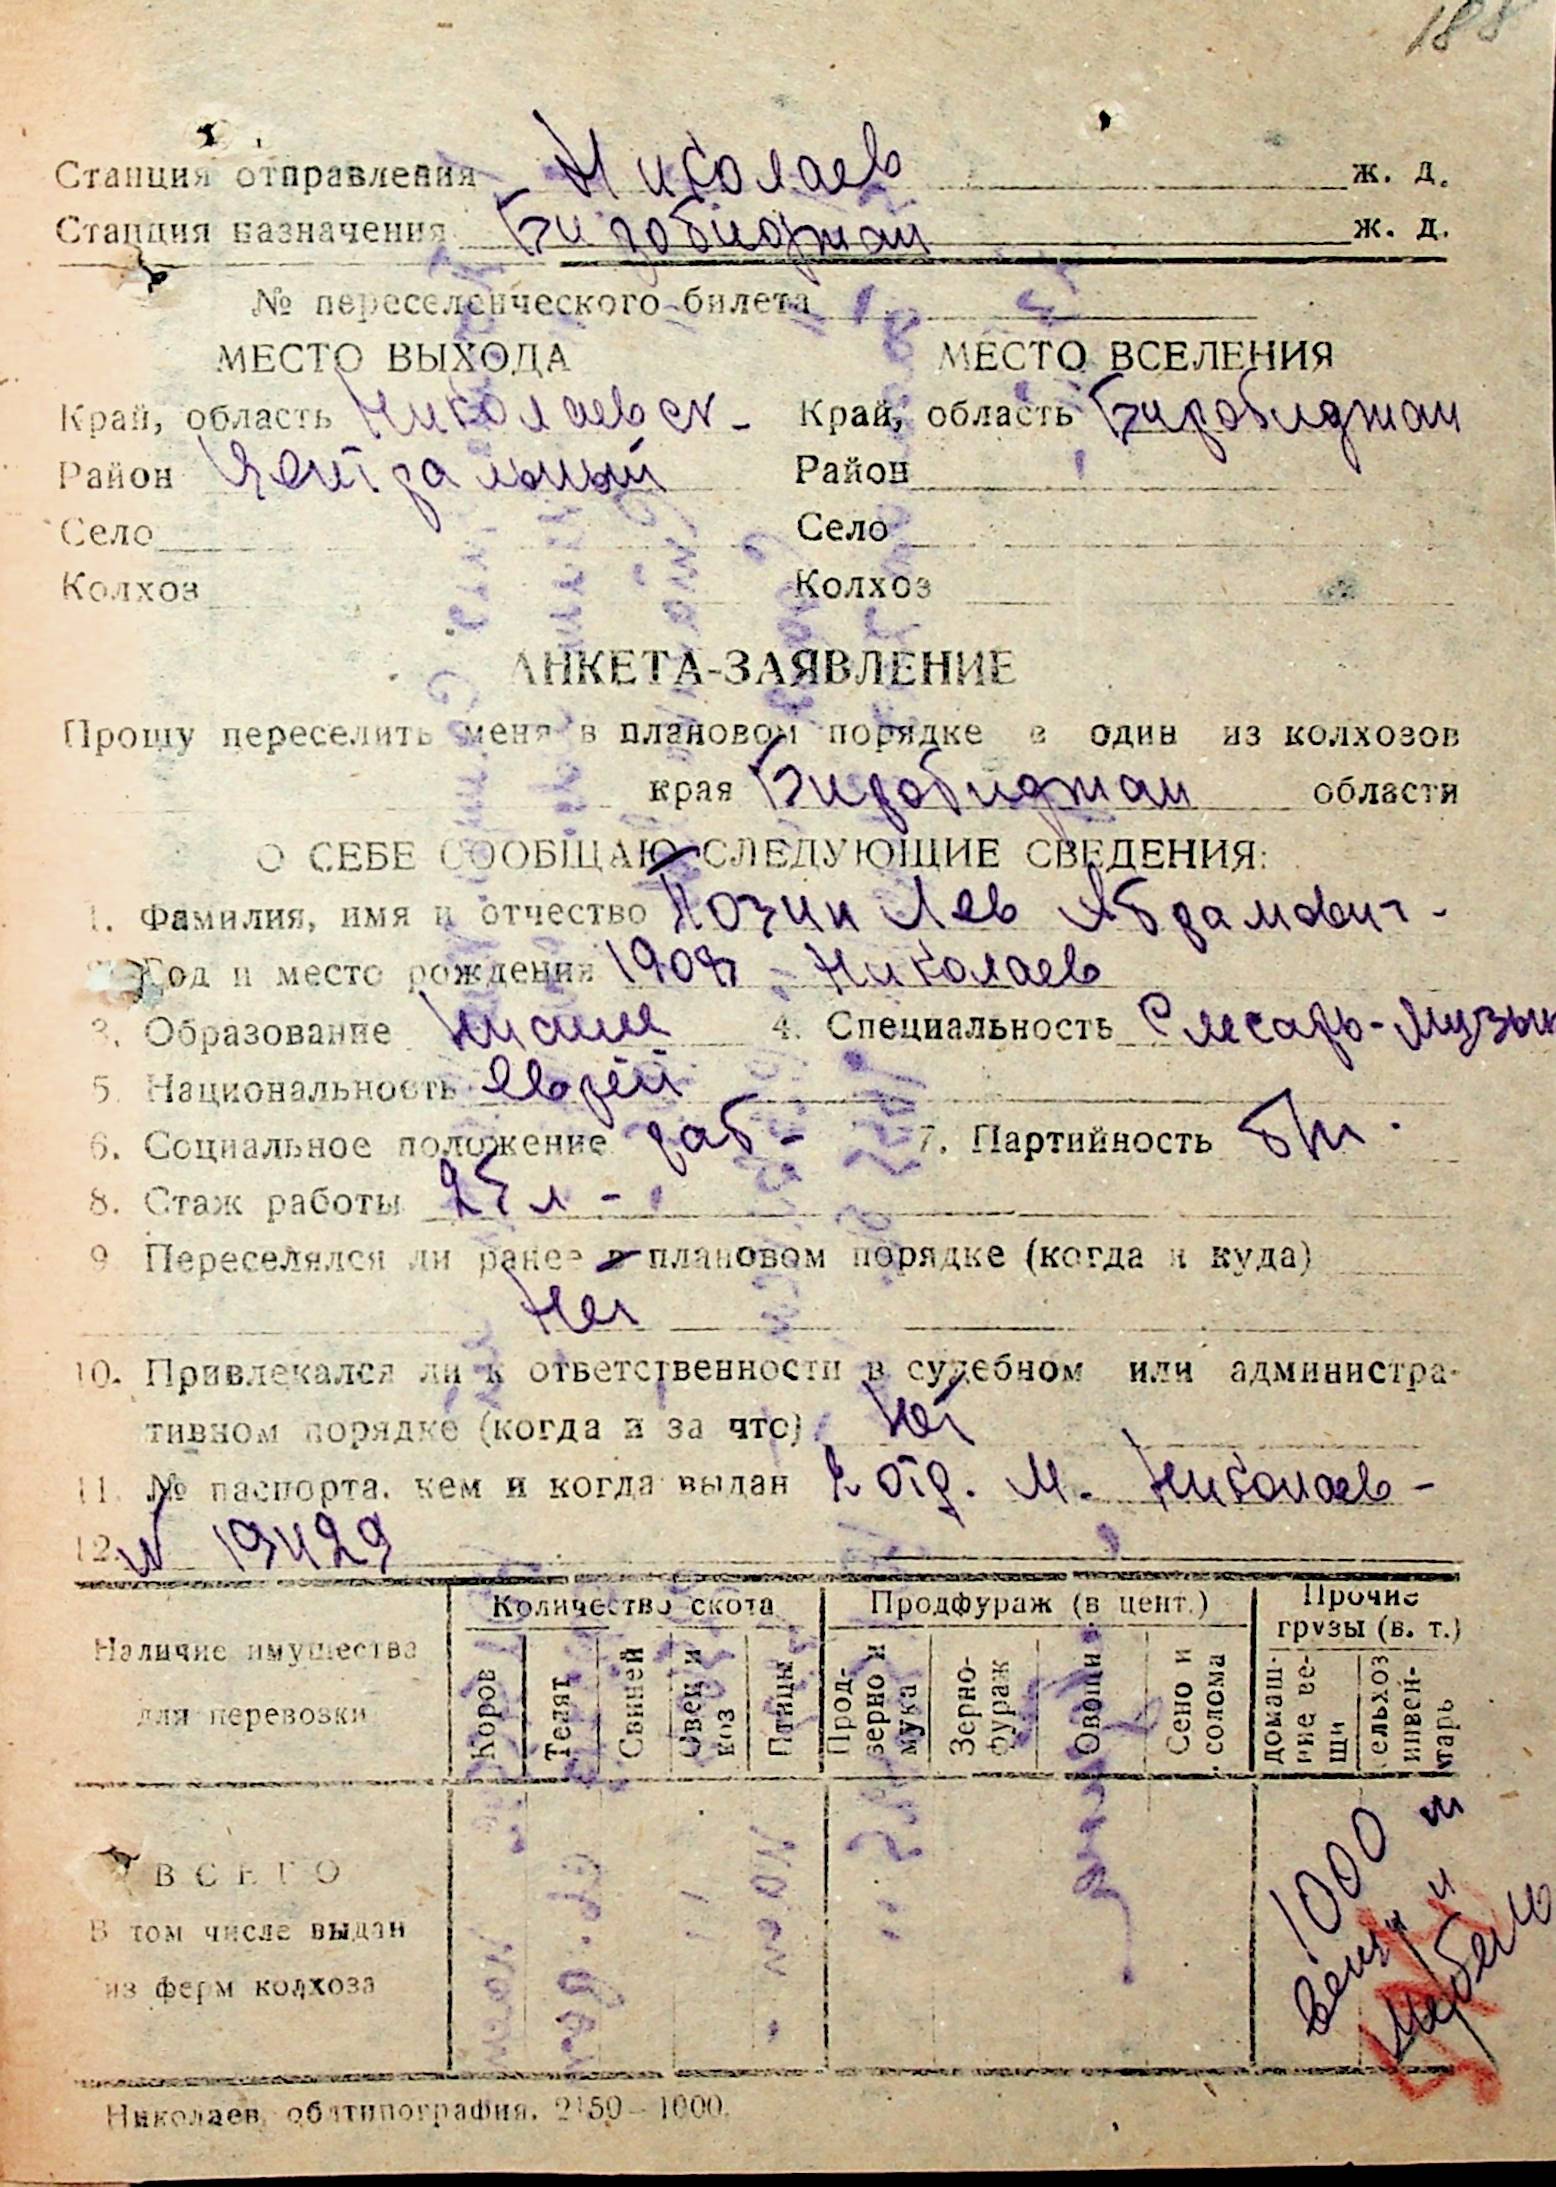 188
Станция отправления Николаев ж. д.
Станция назначения Биробиджан ж. д.
№ переселенческого билета
МЕСТО ВЫХОДА МЕСТО ВСЕЛЕНИЯ
Край, область Николаевск- Край, область Биробиджан
Район Центральный Район
Село Село
Колхоз Колхоз
АНКЕТА-ЗАЯВЛЕНИЕ
Прошу переселить меня в плановом порядке в один из колхозов
края Биробиджан области
О СЕБЕ СООБЩАЮ СЛЕДУЮЩИЕ СВЕДЕНИЯ:
1. Фамилия, имя и отчество Позин Лев Абрамович-
Год и место рождения 1908 - Николаев
3. Образование Низшее 4. Специальность Слесарь-музык
5. Национальность Еврей
6. Социальное положение раб- 7. Партийность б/п.
8. Стаж работы 25 л -
9 Переселялся ли ранее в плановом порядке (когда и куда)
Нет
10. Привлекался ли к ответственности в судебном или администра-
тивном порядке (когда и за что) Нет
11. № паспорта, кем и когда выдан 2 отд. М. Николаев-
12. № 19429
Наличие имущества для перевозки
Количество скота Продфураж (в цент.) Прочие грузы (в. т.)
Коров Телят Свиней Овец и коз Птицы Прод-зерно и мука Зерно-фураж Овощи Сено и солома домаш-ние ве-щи сельхоз инвен-тарь
ВСЕГО
В том числе выдан
из ферм колхоза
1000
вещи и
мебель
Николаев, облтипография. 2150—1000.